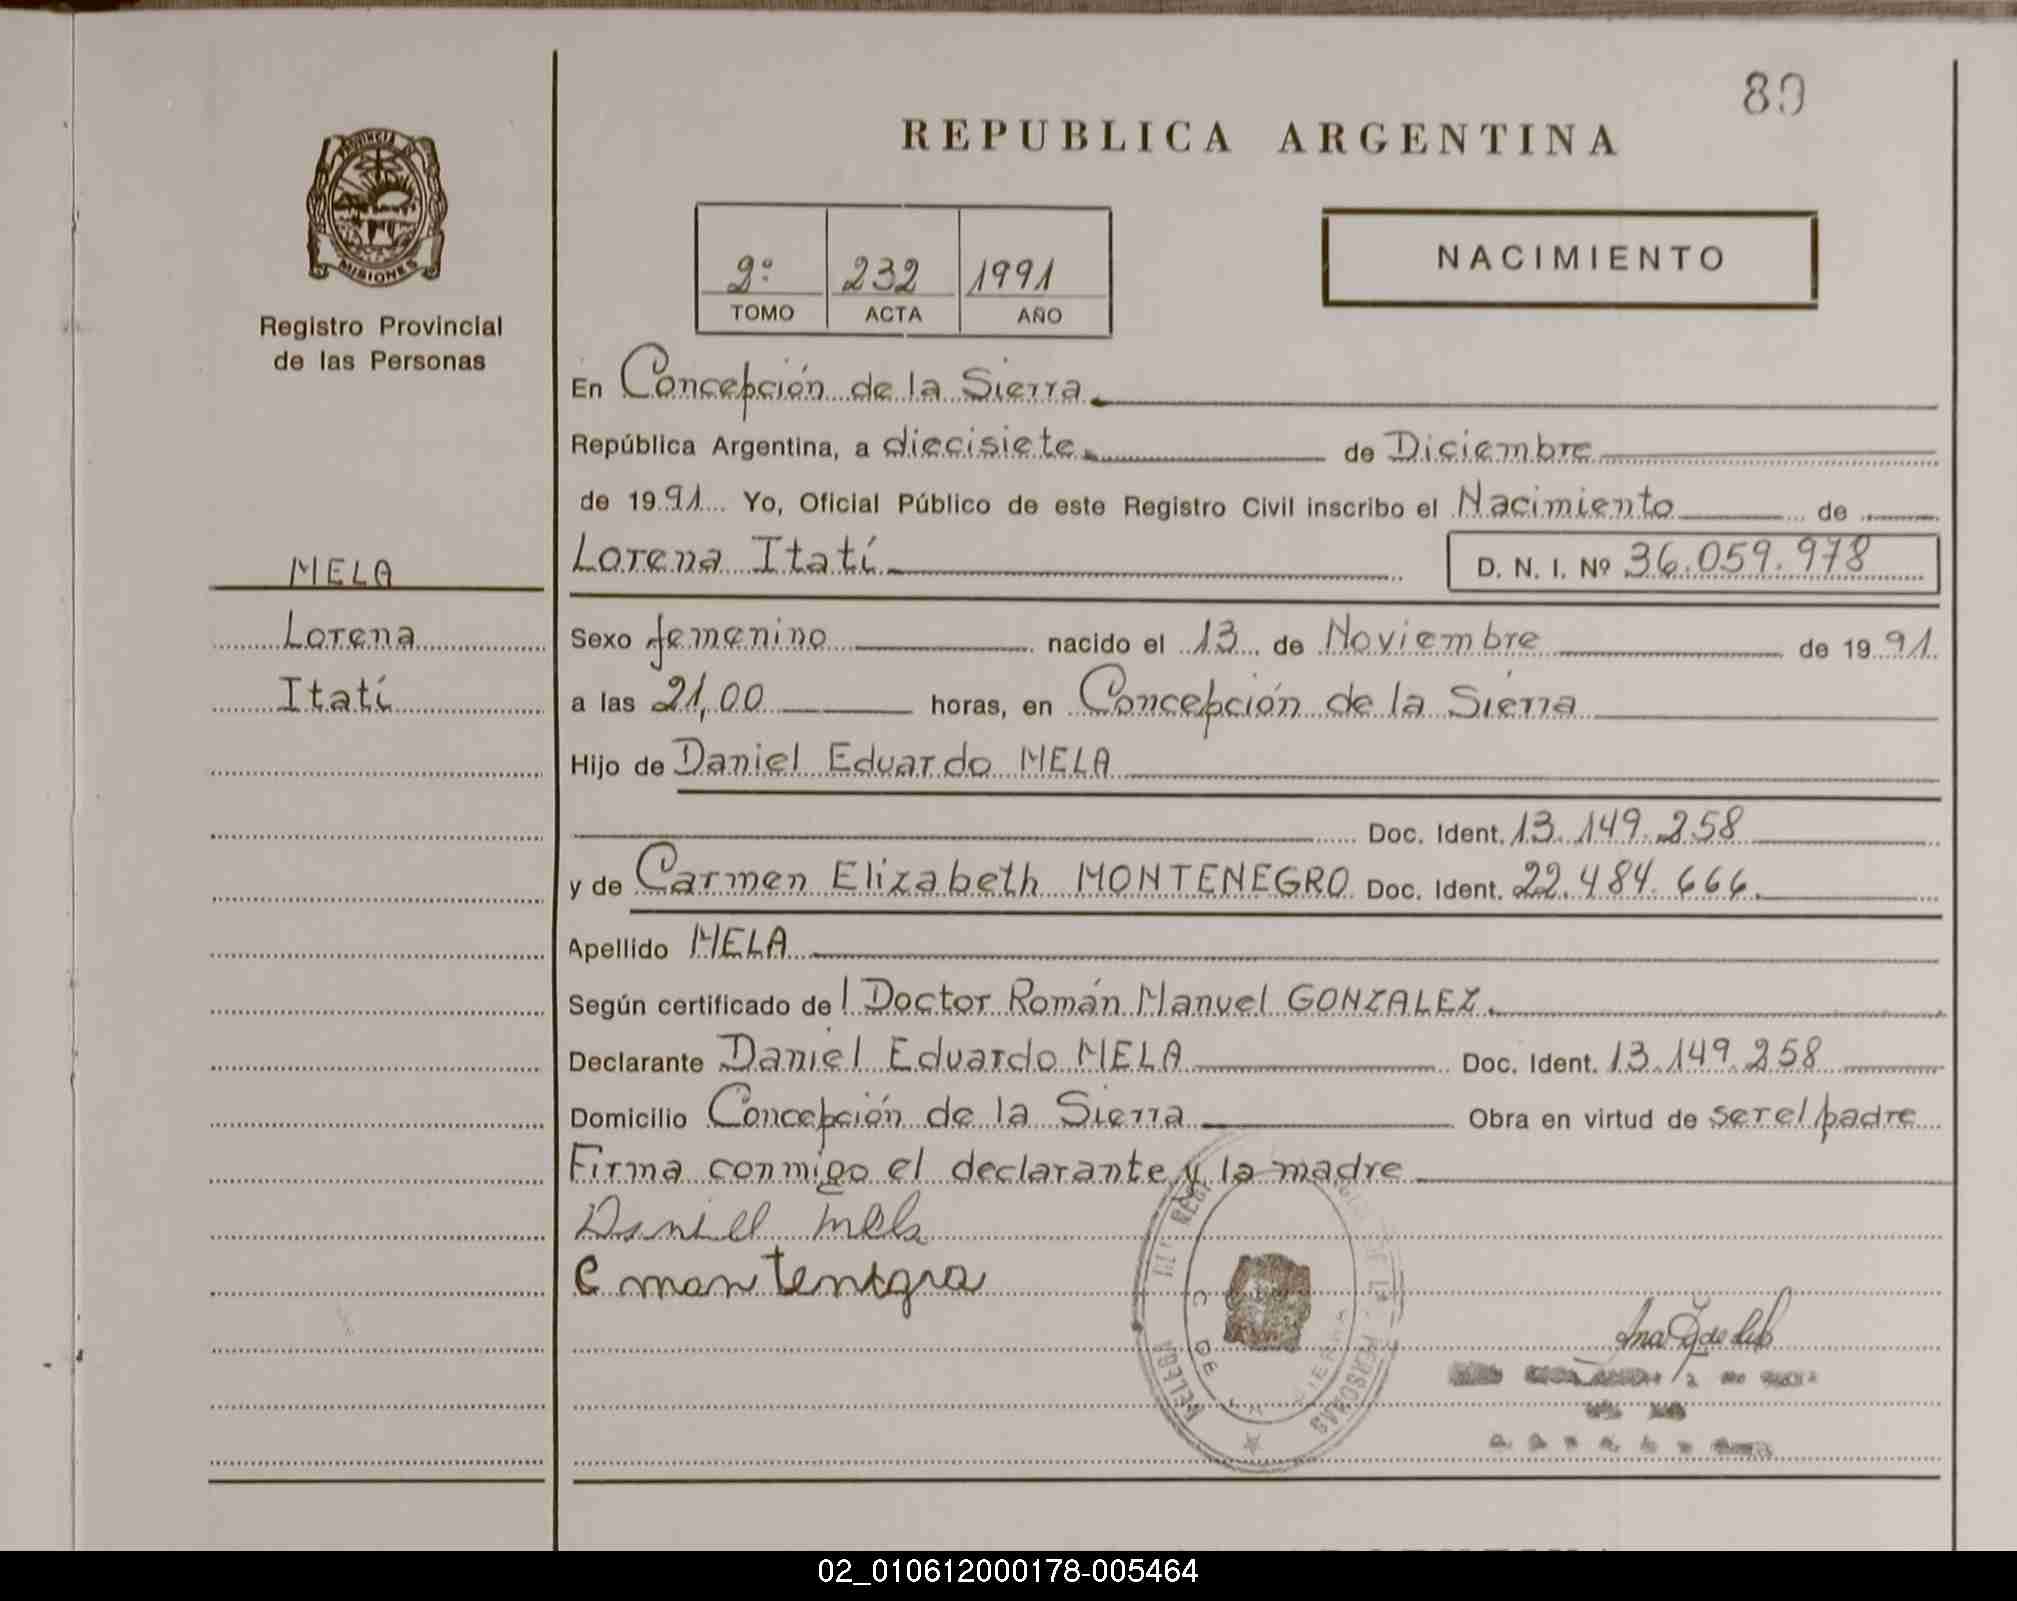 80
REPUBLICA ARGENTINA
PROVINCIA DE
MISIONES
Registro Provincial
de las Personas
2º 232 1991
TOMO ACTA AÑO
NACIMIENTO
En Concepción de la Sierra
República Argentina, a diecisiete de Diciembre
de 1991 Yo, Oficial Público de este Registro Civil inscribo el Nacimiento de
Lorena Itatí D. N. I. Nº 36.059.978
MELA
Lorena
Itatí
Sexo femenino nacido el 13 de Noviembre de 1991
a las 21,00 horas, en Concepción de la Sierra
Hijo de Daniel Eduardo MELA
Doc. Ident. 13.149.258
y de Carmen Elizabeth MONTENEGRO Doc. Ident. 22.484.666
Apellido MELA
Según certificado del Doctor Román Manuel GONZALEZ
Declarante Daniel Eduardo MELA Doc. Ident. 13.149.258
Domicilio Concepción de la Sierra Obra en virtud de ser el padre
Firma conmigo el declarante y la madre
Daniel Mela
C montenegro
02_010612000178-005464